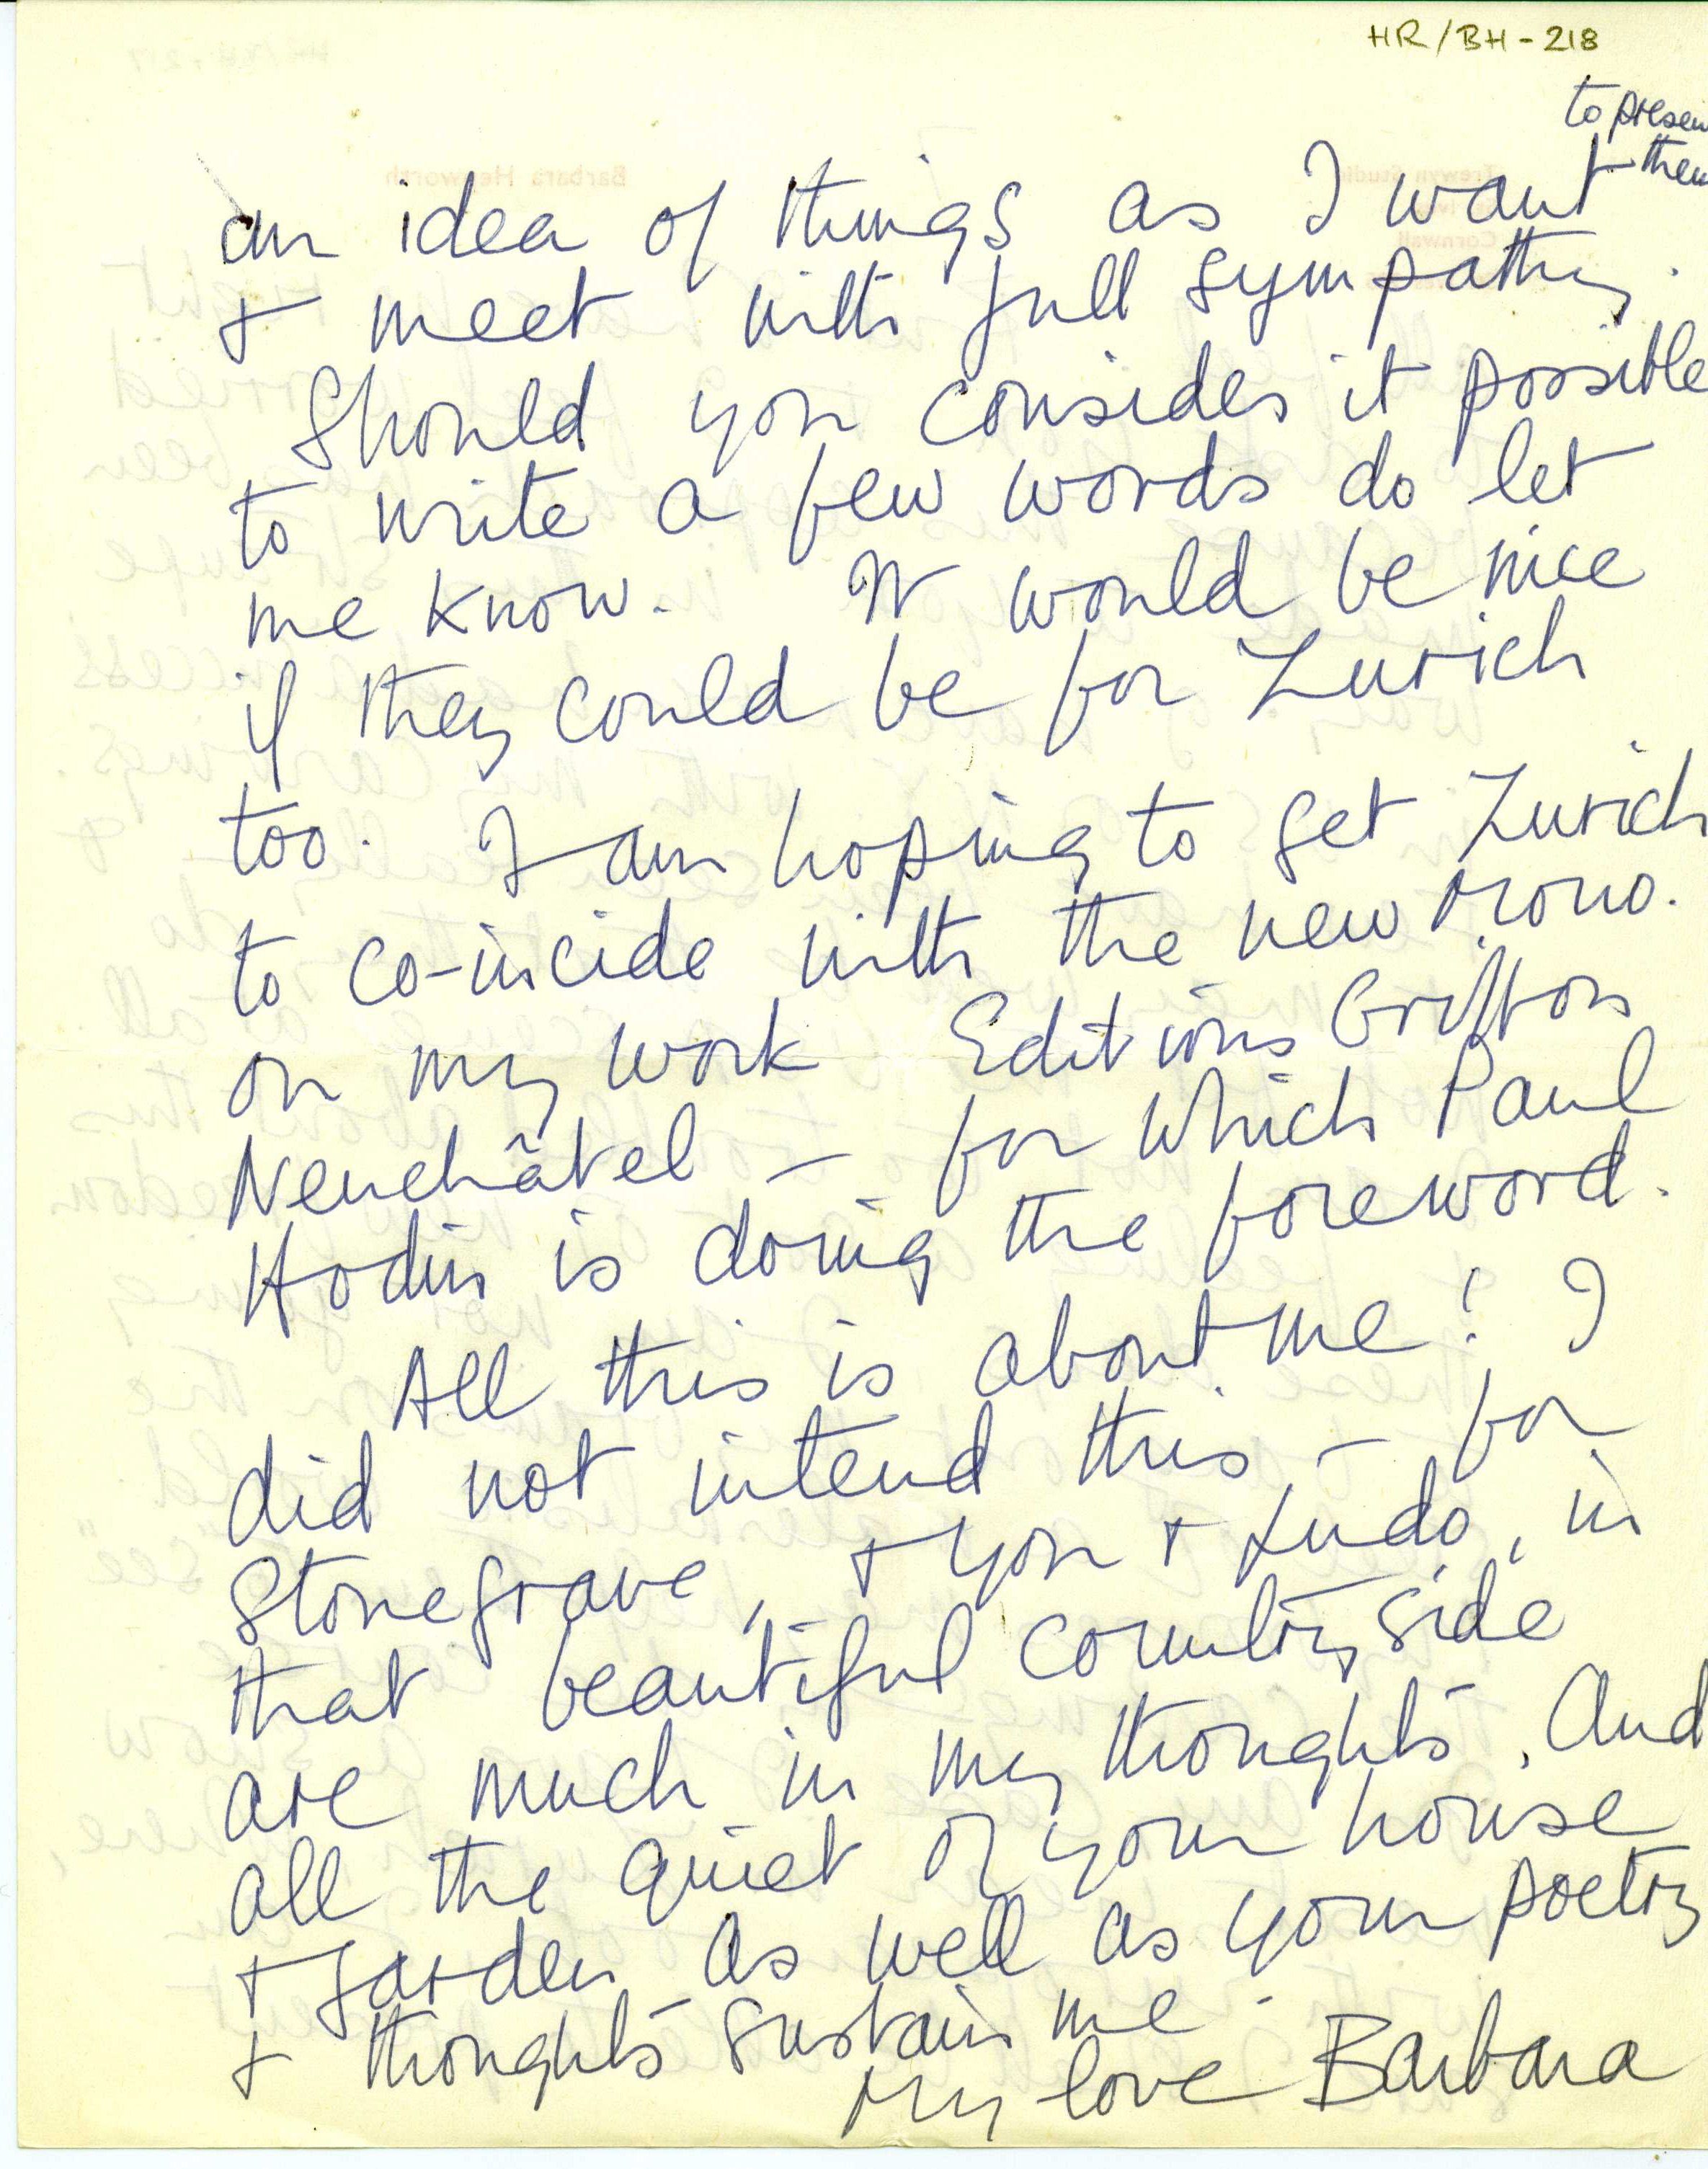 HR/BH-218
to presen
them
an idea of things as I want
+ meet with full sympathy.
Should you consider it possible
to write a few words do let
me know. It would be nice
if they could be for Zurich
too. I am hoping to get Zurich
to co-incide with the new Mono.
on my work Editions Griffon
Neuchâtel – for which Paul
Hodin is doing the foreword.
All this is about me! I
did not intend this – for
Stonegrave, + you + Ludo, in
that beautiful countryside
are much in my thoughts. And
all the quiet of your house
+ garden as well as your poetry
+ thoughts sustain me.
My love Barbara